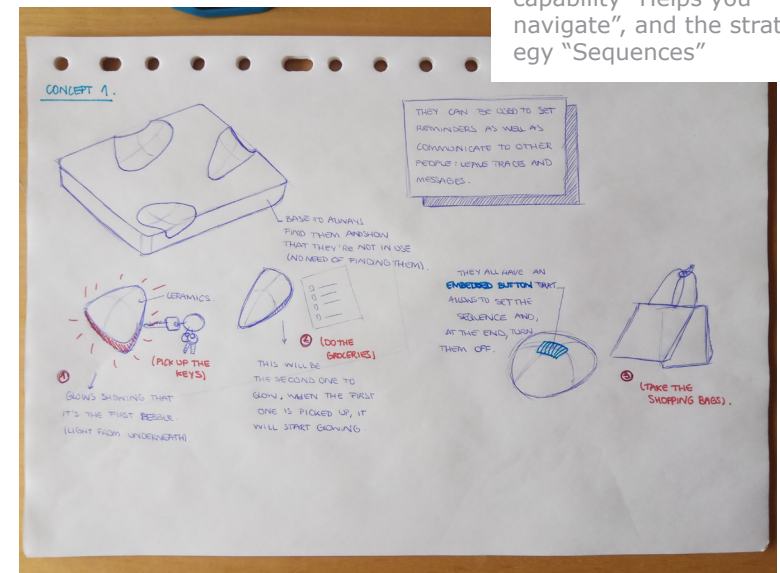 capability “Helps you
navigate”, and the strat
egy “Sequences”
CONCEPT 1.
THEY CAN BE USED TO SET
REMINDERS AS WELL AS
COMMUNICATE TO OTHER
PEOPLE: LEAVE TRACES AND
MESSAGES.
BASE TO ALWAYS
FIND THEM AND SHOW
THAT THEY'RE NOT IN USE
(NO NEED OF FINDING THEM).
CERAMICS.
(PICK UP THE
KEYS)
1
GLOWS SHOWING THAT
IT'S THE FIRST PEBBLE.
(LIGHT FROM UNDERNEATH)
2 (DO THE
GROCERIES)
THIS WILL BE
THE SECOND ONE TO
GLOW, WHEN THE FIRST
ONE IS PICKED UP, IT
WILL START GLOWING.
THEY ALL HAVE AN
EMBEDDED BUTTON THAT
ALLOWS TO SET THE
SEQUENCE AND,
AT THE END, TURN
THEM OFF.
3 (TAKE THE
SHOPPING BAGS).